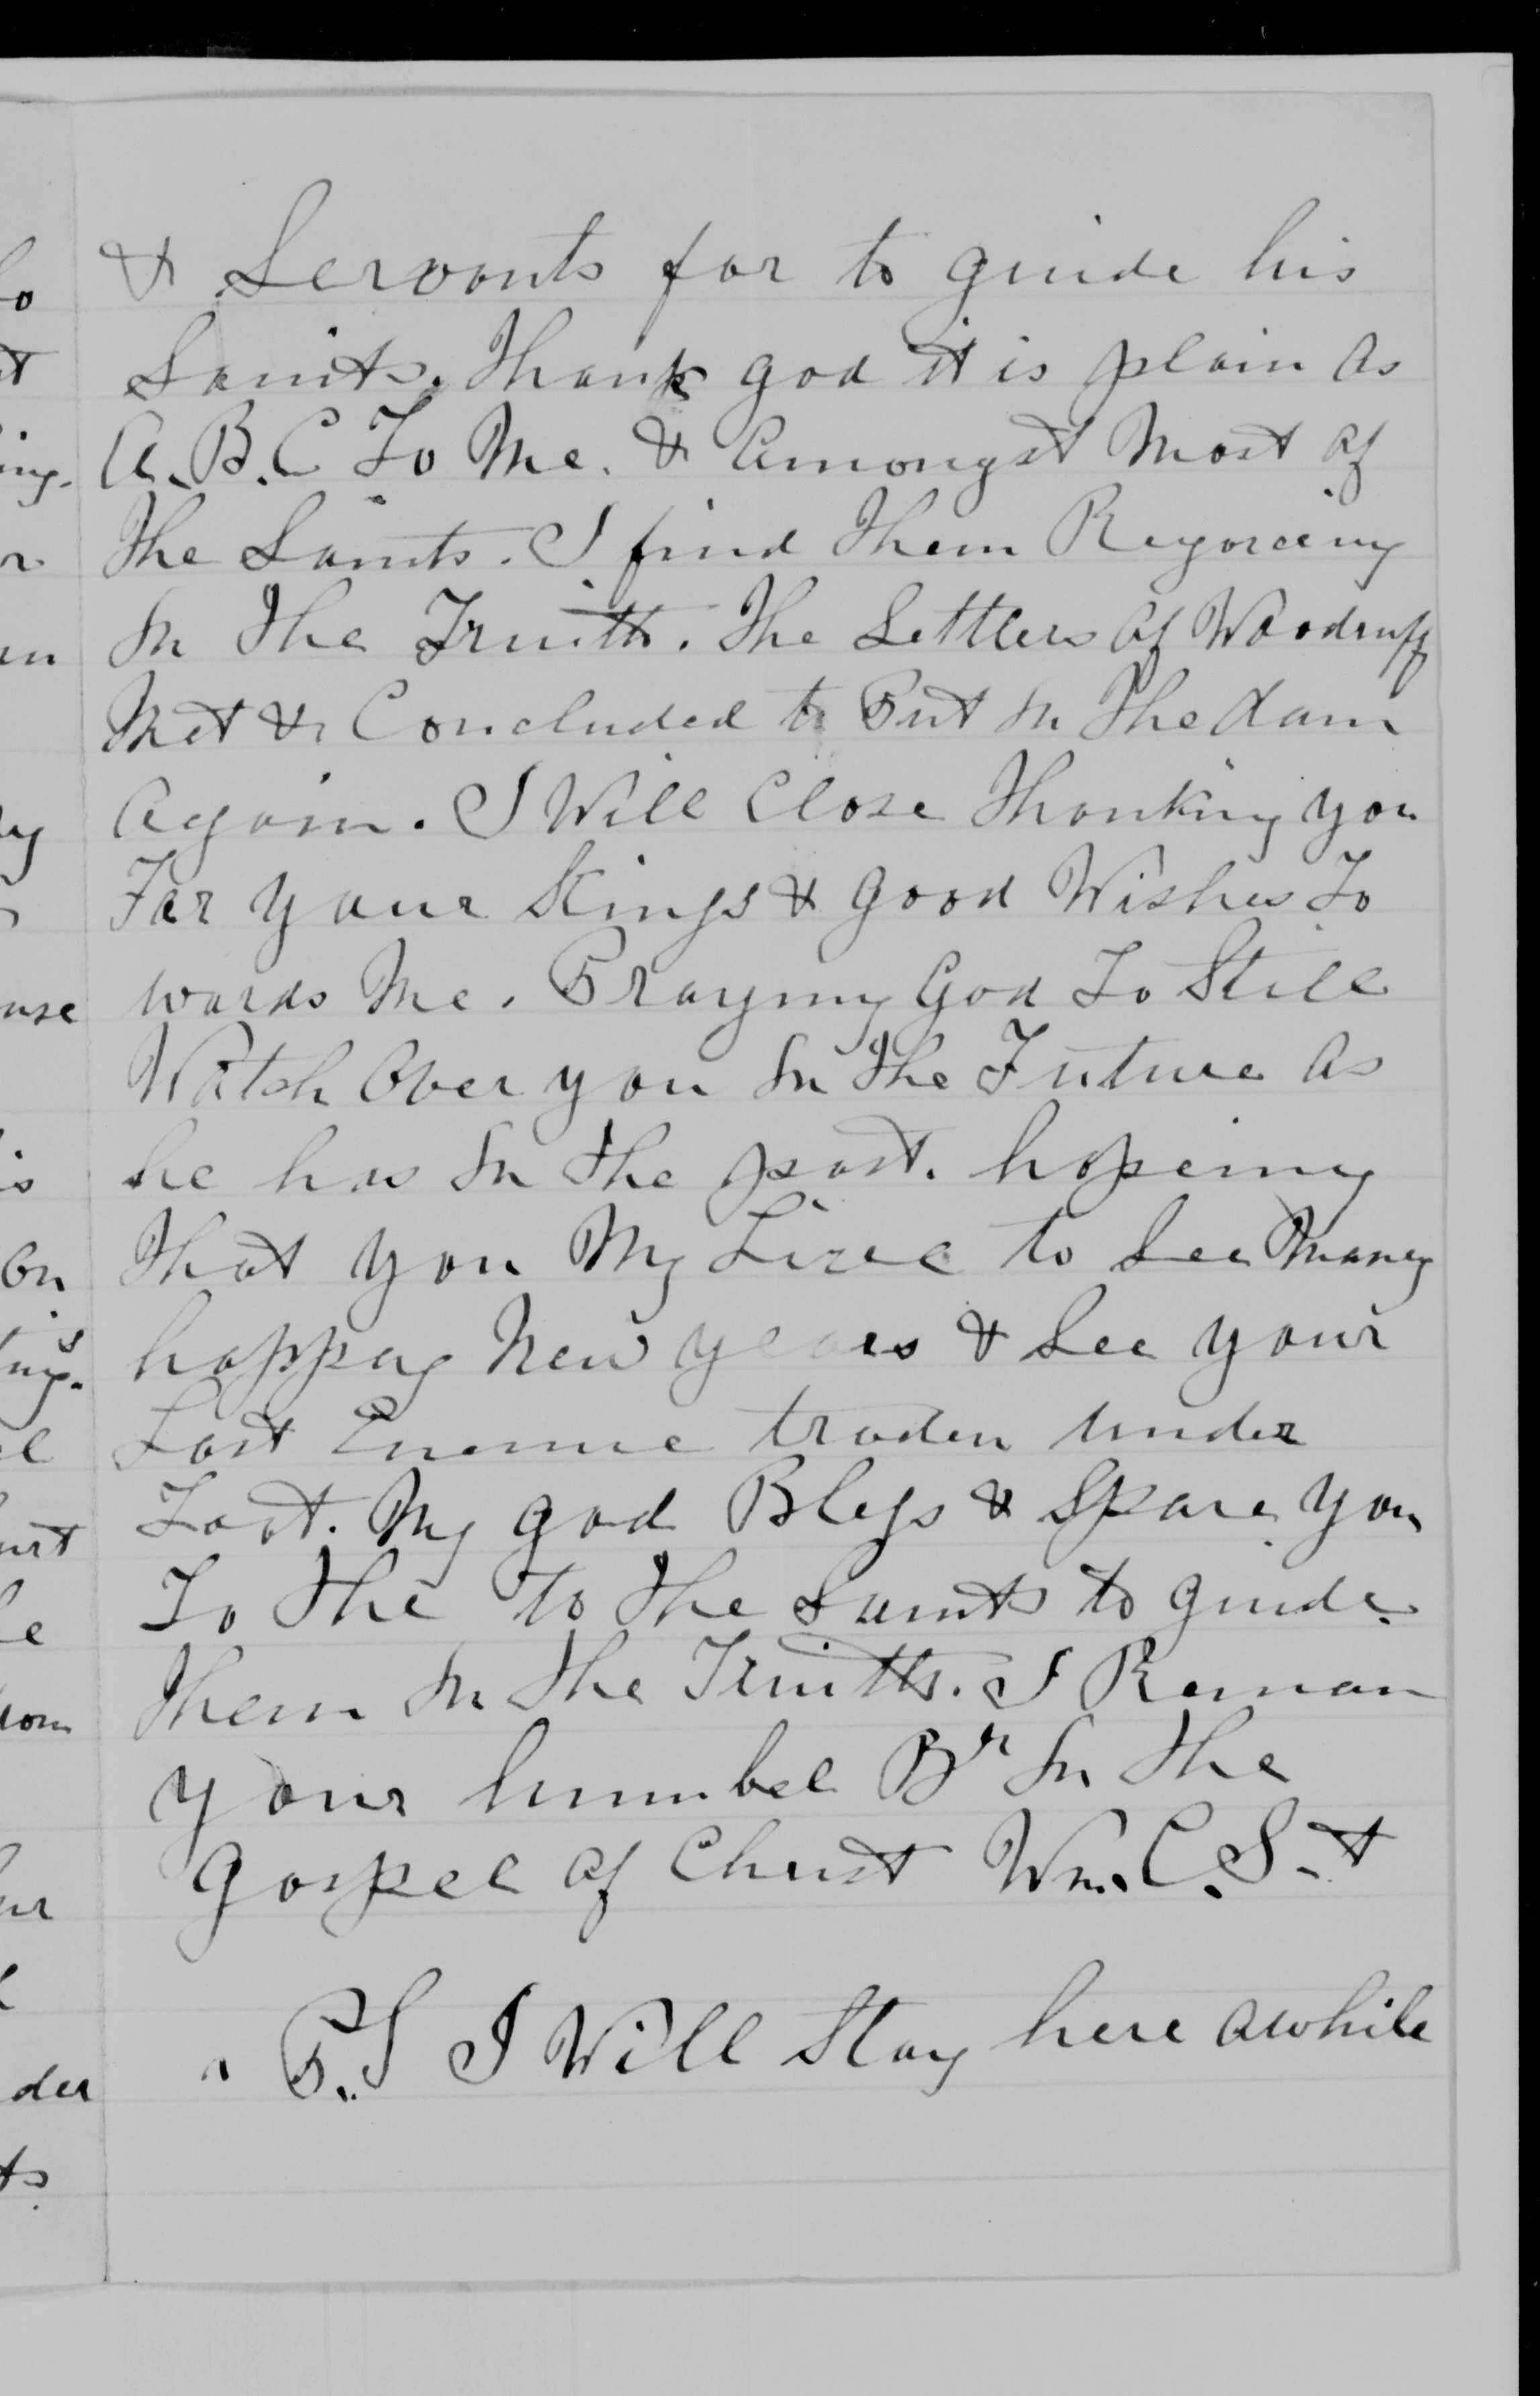 & Servants for to guide his
Saints. Thank god it is plain as
A.B.C To Me. & Amongst Most of
The Saints. I find Them Rejoiceing
In The Truith. The Settlers of Woodruff
Met & Concluded to Put In The dam
Again. I Will Close Thanking you
For your Kings & good Wishes To
wards Me. Praying God To Still
Watch Over you In The Future as
he has In the past. hopeing
That you My Live to See Maney
happey New years & See your
Last Enemie troden under
Foot. My god Bless & Spare you
To The to the Saints to guide
Them In The Truith. I Reman
your humbel Br In The
gospel of Christ Wm. C. S-t
P.S I Will Stay here awhile